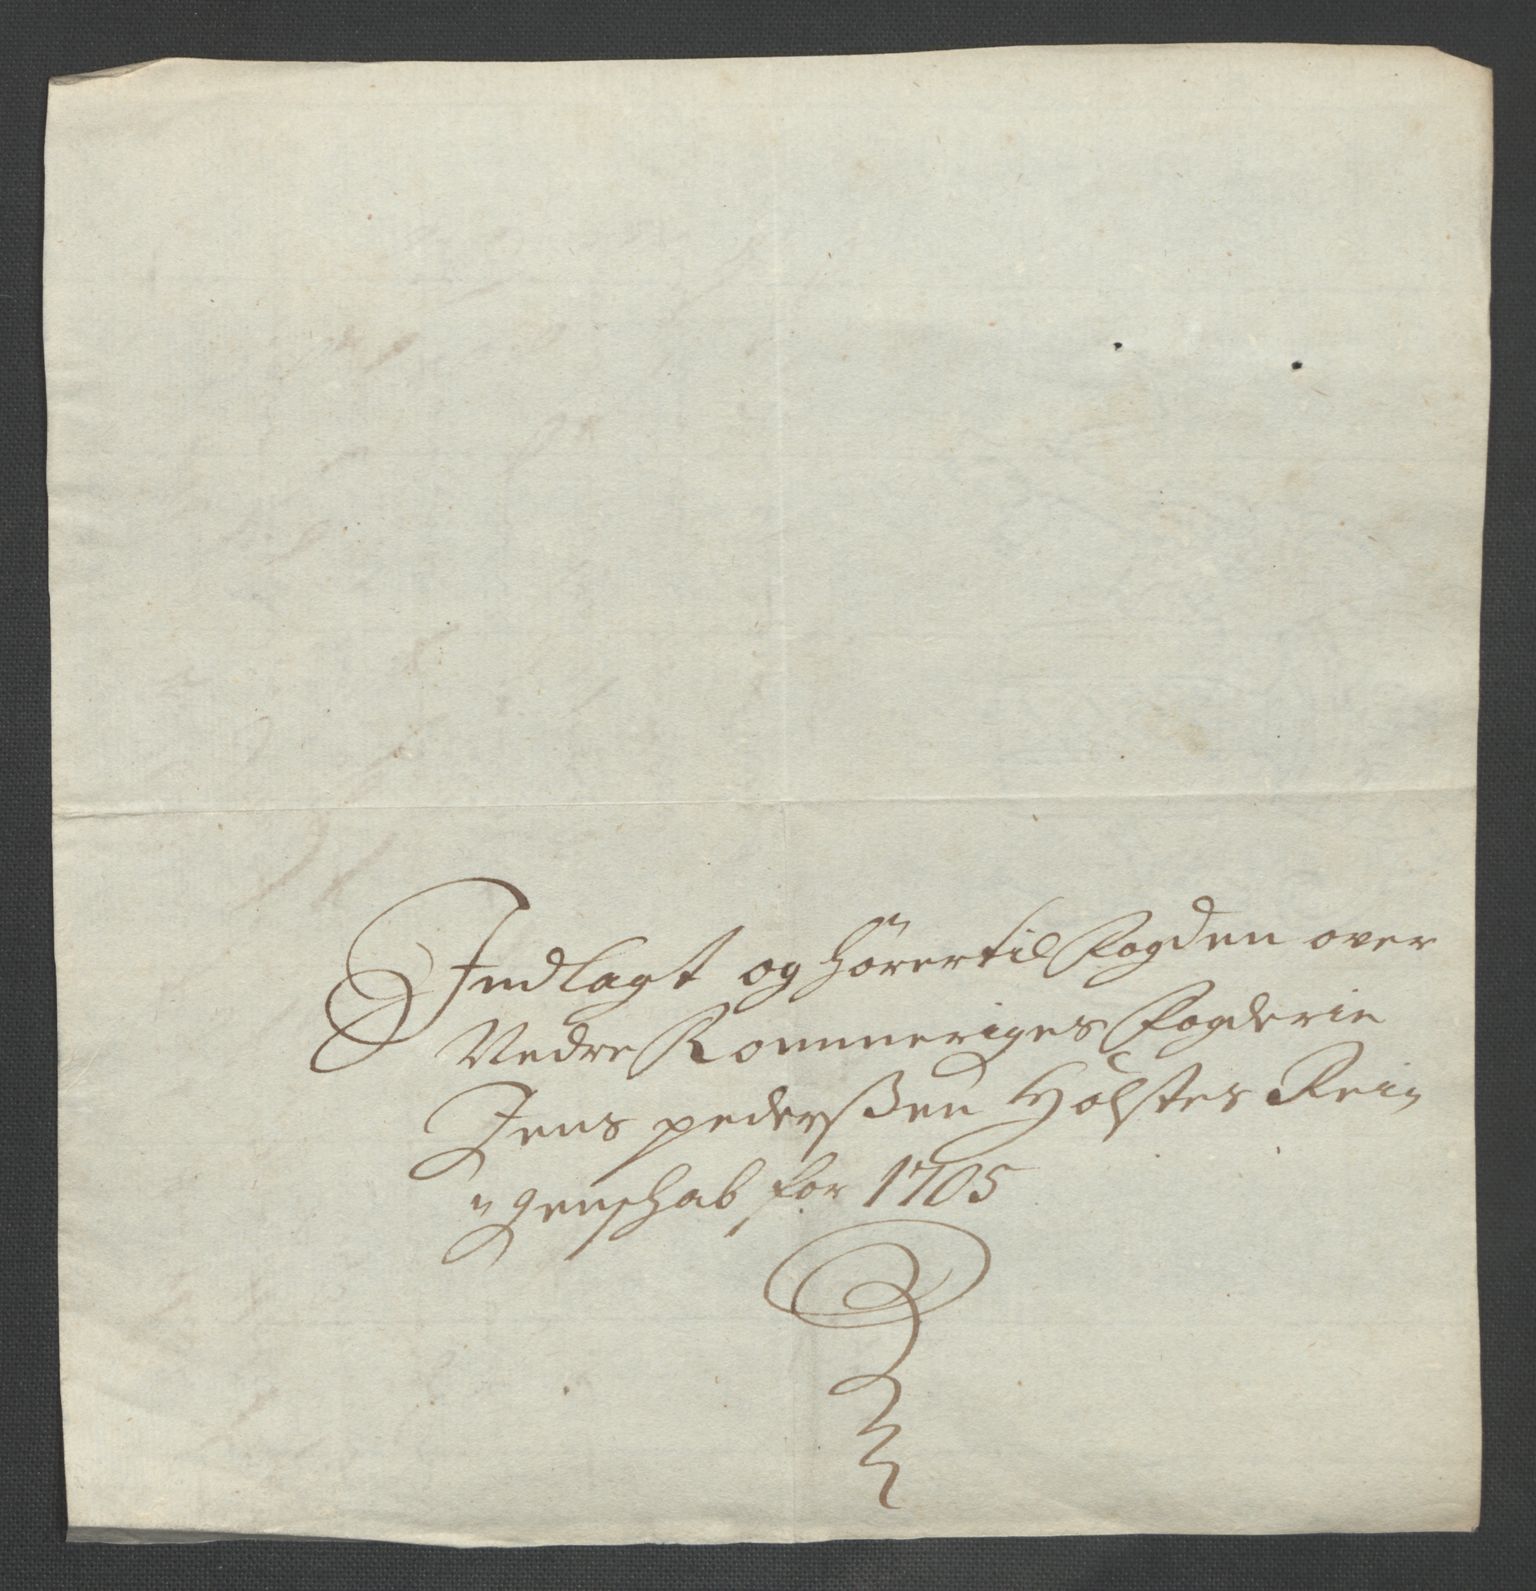 Indlagt og hörer til Fogden over
Nedre Rommeriges Fogderie
Jens pederßen Holstes Rei„
„genschab for 1705